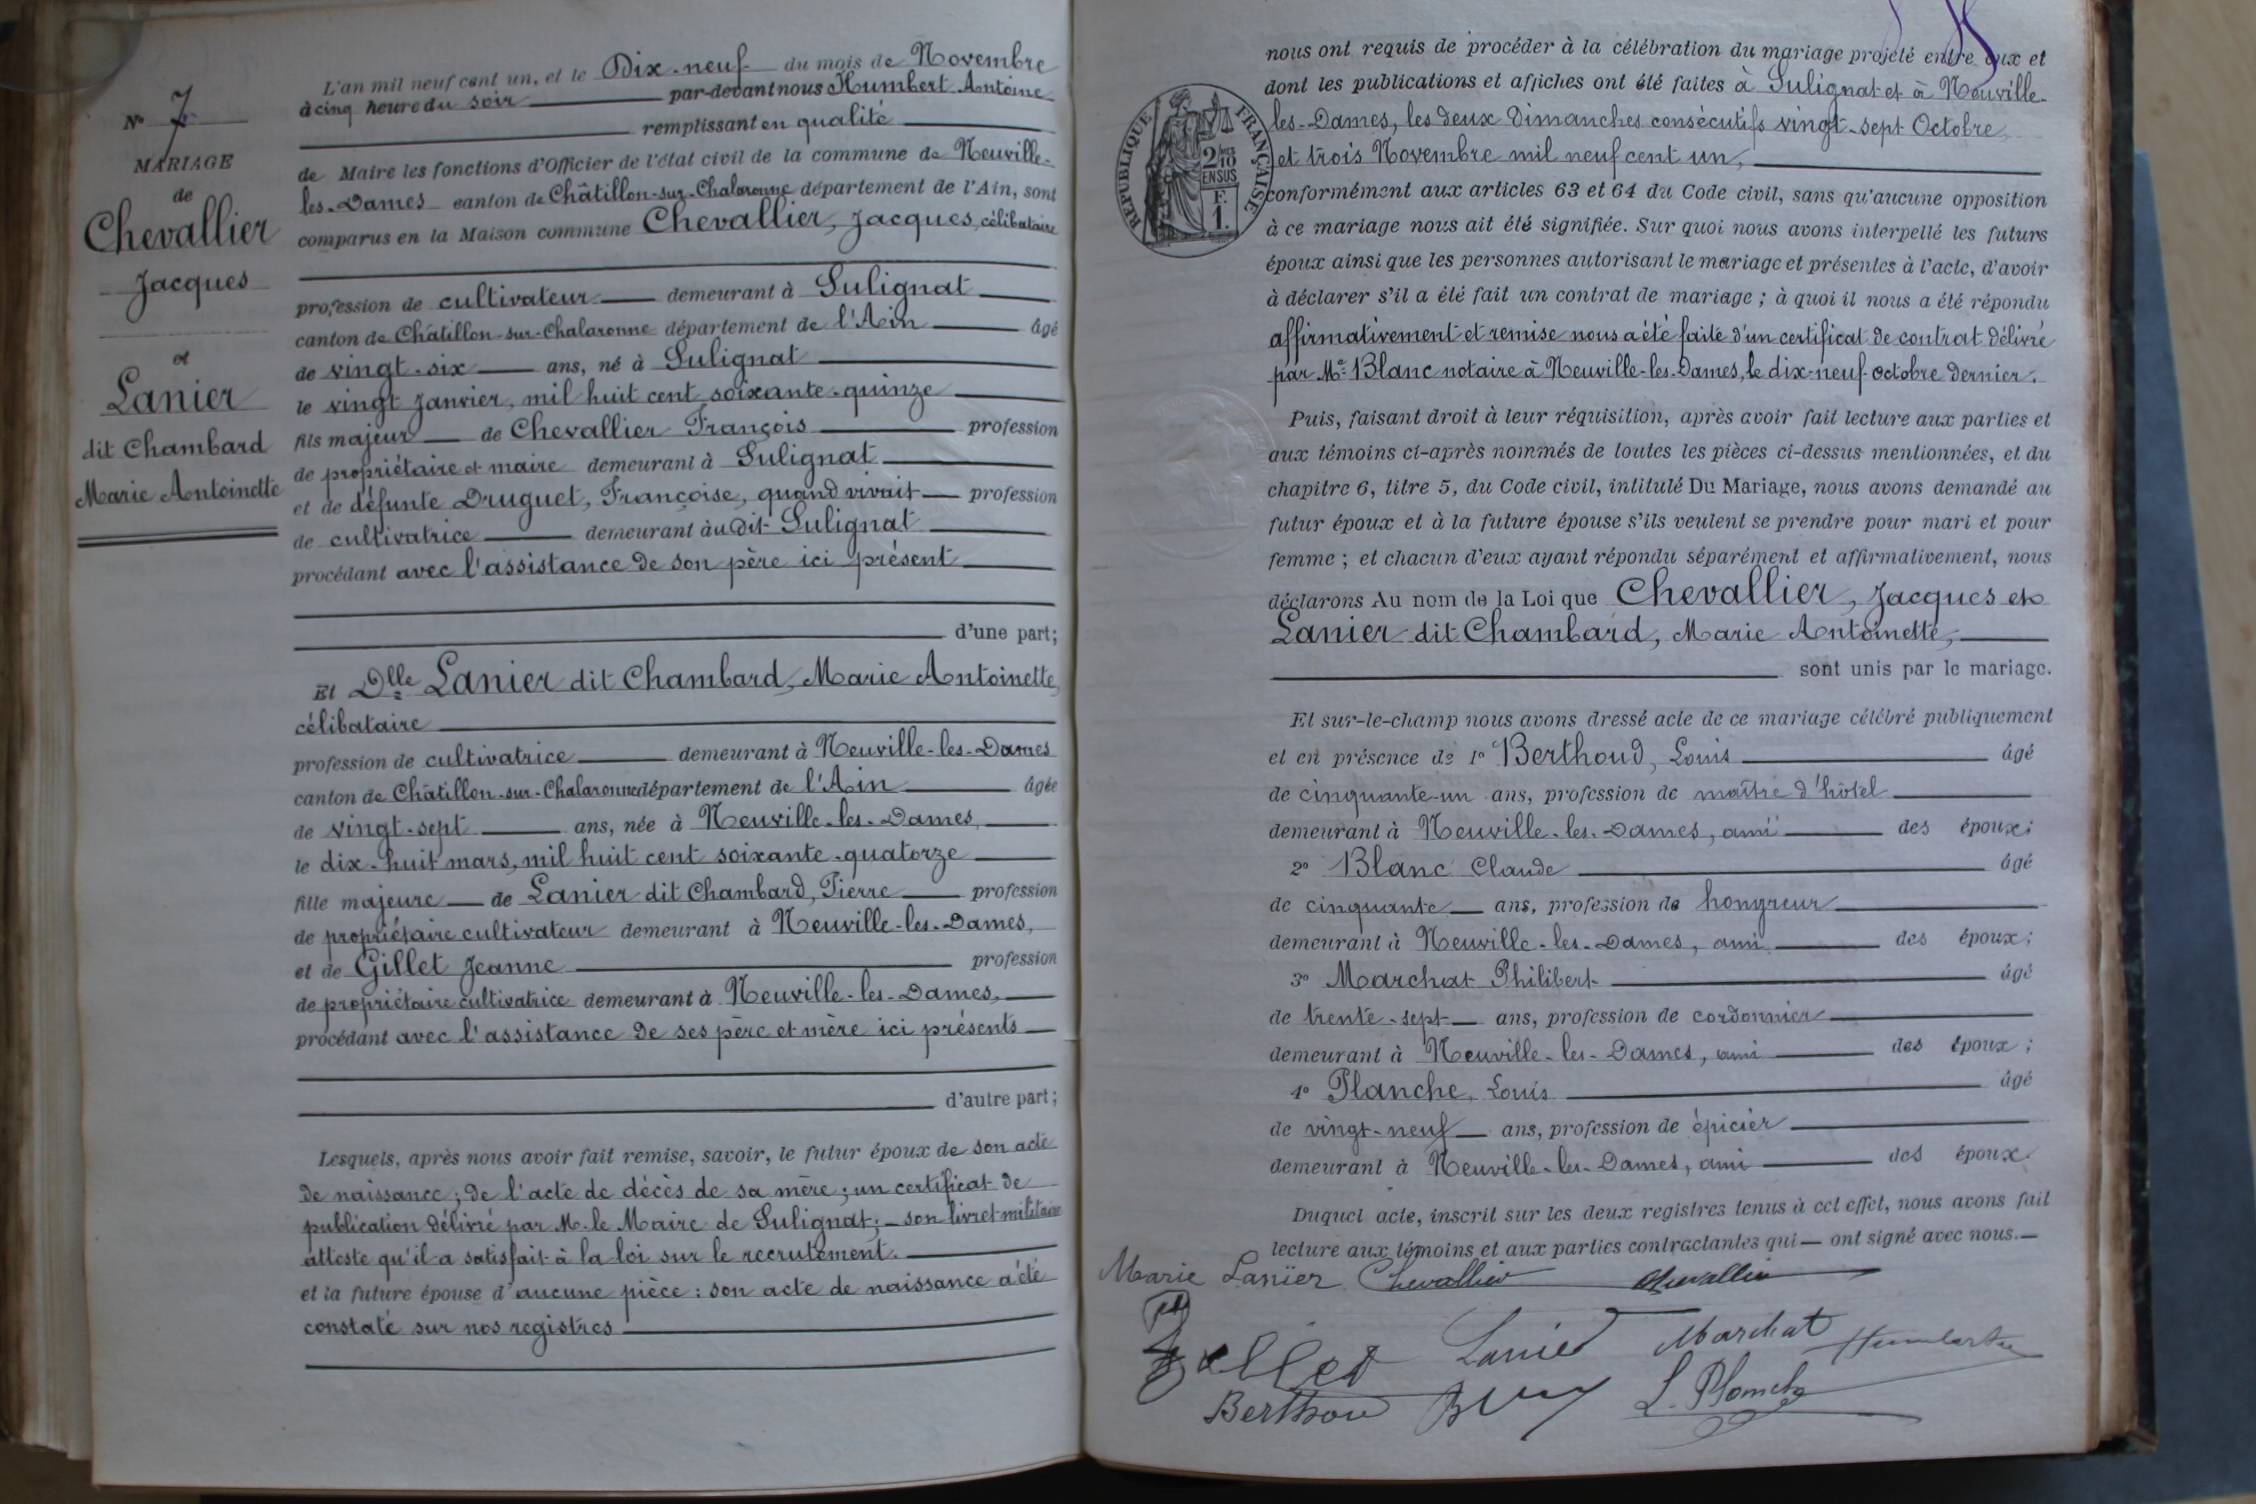 N° 7
MARIAGE
de
Chevallier
Jacques
et
Lanier
dit Chambard
Marie Antoinette
L'an mil neuf cent un, et le Dix-neuf du mois de Novembre
à cinq heure du soir par-devant nous Humbert Antoine
remplissant en qualité
de Maire les fonctions d'Officier de l'état civil de la commune de Neuville-
les-Dames canton de Châtillon-sur-Chalaronne département de l'Ain, sont
comparus en la Maison commune Chevallier, Jacques, célibataire
profession de cultivateur demeurant à Sulignat
canton de Châtillon-sur-Chalaronne département de l'Ain âgé
de vingt-six ans, né à Sulignat
le vingt Janvier, mil huit cent soixante-quinze
fils majeur de Chevallier François profession
de propriétaire et maire demeurant à Sulignat
et de défunte Druguet, Françoise, quand vivait profession
de cultivatrice demeurant audit Sulignat
procédant avec l'assistance de son père ici présent
d'une part;
Et Dlle Lanier dit Chambard, Marie Antoinette,
célibataire
profession de cultivatrice demeurant à Neuville-les-Dames
canton de Châtillon-sur-Chalaronne département de l'Ain âgée
de vingt-sept ans, née à Neuville-les-Dames,
le dix-huit mars, mil huit cent soixante-quatorze
fille majeure de Lanier dit Chambard, Pierre profession
de propriétaire cultivateur demeurant à Neuville-les-Dames,
et de Gillet Jeanne profession
de propriétaire cultivatrice demeurant à Neuville-les-Dames,
procédant avec l'assistance de ses père et mère ici présents
d'autre part;
Lesquels, après nous avoir fait remise, savoir, le futur époux de son acte
de naissance; de l'acte de décès de sa mère; un certificat de
publication délivré par M. le Maire de Sulignat; son livret militaire
atteste qu'il a satisfait à la loi sur le recrutement.
et la future épouse d'aucune pièce: son acte de naissance a été
constaté sur nos registres
nous ont requis de procéder à la célébration du mariage projeté entre eux et
dont les publications et affiches ont été faites à Sulignat et à Neuville-
les-Dames, les deux Dimanches consécutifs vingt-sept Octobre
et trois Novembre mil neuf cent un,
RÉPUBLIQUE FRANÇAISE
2/10
EN SUS
F.
1.
conformément aux articles 63 et 64 du Code civil, sans qu'aucune opposition
à ce mariage nous ait été signifiée. Sur quoi nous avons interpellé les futurs
époux ainsi que les personnes autorisant le mariage et présentes à l'acte, d'avoir
à déclarer s'il a été fait un contrat de mariage; à quoi il nous a été répondu
affirmativement et remise nous a été faite d'un certificat de contrat délivré
par Me Blanc notaire à Neuville-les-Dames, le dix-neuf octobre dernier.
Puis, faisant droit à leur réquisition, après avoir fait lecture aux parties et
aux témoins ci-après nommés de toutes les pièces ci-dessus mentionnées, et du
chapitre 6, titre 5, du Code civil, intitulé Du Mariage, nous avons demandé au
futur époux et à la future épouse s'ils veulent se prendre pour mari et pour
femme; et chacun d'eux ayant répondu séparément et affirmativement, nous
déclarons Au nom de la Loi que Chevallier, Jacques et
Lanier dit Chambard, Marie Antoinette,
sont unis par le mariage.
Et sur-le-champ nous avons dressé acte de ce mariage célébré publiquement
et en présence de 1° Berthoud, Louis âgé
de cinquante-un ans, profession de maître d'hôtel
demeurant à Neuville-les-Dames, ami des époux;
2° Blanc Claude âgé
de cinquante ans, profession de hongreur
demeurant à Neuville-les-Dames, ami des époux;
3° Marchat Philibert âgé
de trente-sept ans, profession de cordonnier
demeurant à Neuville-les-Dames, ami des époux;
4° Planche, Louis âgé
de vingt-neuf ans, profession de épicier
demeurant à Neuville-les-Dames, ami des époux.
Duquel acte, inscrit sur les deux registres tenus à cet effet, nous avons fait
lecture aux témoins et aux parties contractantes qui ont signé avec nous.
Marie Lanier Chevallier Chevallier
Lanier Marchat
Berthoud L. Planche